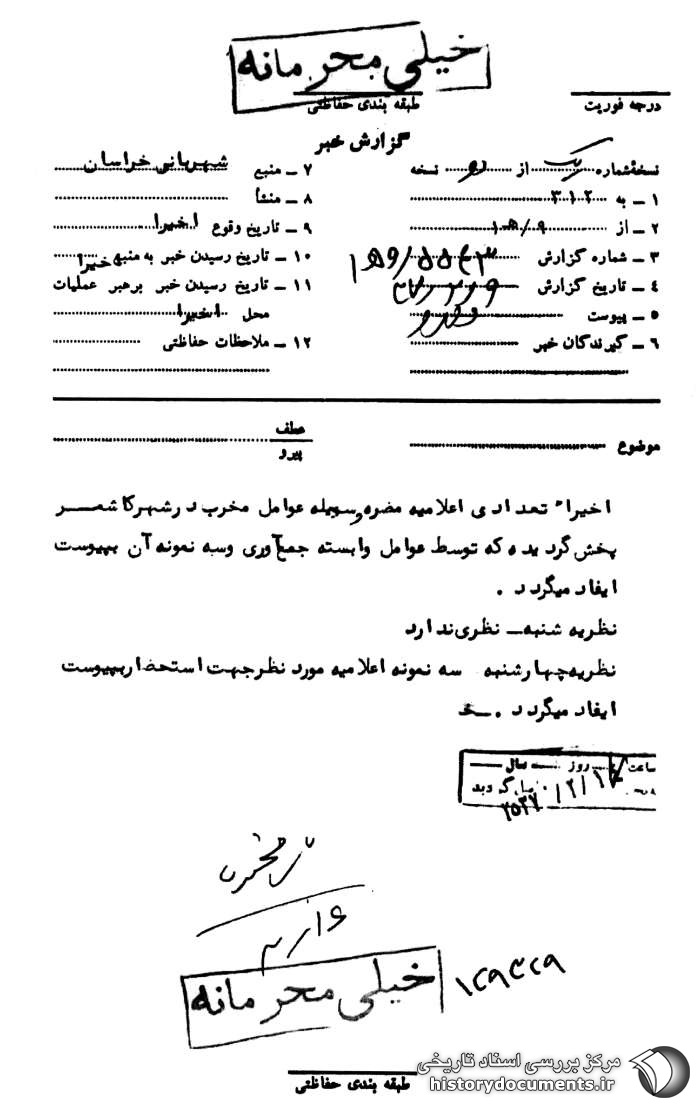 خیلی محرمانه
طبقه بندی حفاظتی
درجه فوریت
گزارش خبر
نسخهٔ شماره یک از دو نسخه
۱ – به ۳۱۲
۲ – از ۹/ه۱
۳ – شماره گزارش
۴ – تاریخ گزارش
۵ – پیوست دارد
۶ – گیرندگان خبر
۷ – منبع شهربانی خراسان
۸ – منشأ
۹ – تاریخ وقوع اخیرا
۱۰ – تاریخ رسیدن خبر به منبع اخیرا
۱۱ – تاریخ رسیدن خبر برهبر عملیات
محل اخیرا
۱۲ – ملاحظات حفاظتی
موضوع
عطف
پیرو
اخیرا" تعدادی اعلامیه مضره وسیله عوامل مخرب درشهرکاشمر
پخش گردیده که توسط عوامل وابسته جمع‌آوری وسه نمونه آن بپیوست
ایفاد میگردد .
نظریه شنبه – نظری ندارد
نظریه چهارشنبه سه نمونه اعلامیه مورد نظر جهت استحضار بپیوست
ایفاد میگردد .
ساعت روز سال
۲۵۳۷/۲/۱۷
خیلی محرمانه
طبقه بندی حفاظتی
مرکز بررسی اسناد تاریخی
historydocuments.ir